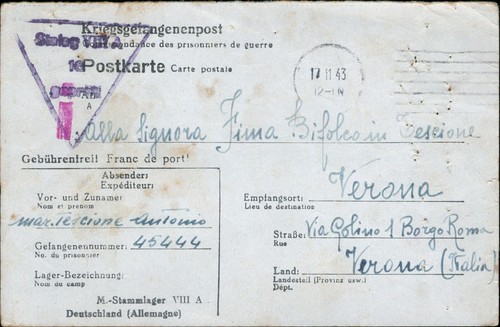 Kriegsgefangenenpost
Correspondance des prisonniers de guerre
Stalag VIII A
16
Geprüft
Postkarte Carte postale
17 11 43
12-1N
An
A
Alla Signora Fima Bifolco in Tescione
Gebührenfrei! Franc de port!
Absender:
Expéditeur:
Vor- und Zuname:
Nom et prénom
mar. Tescione Antonio
Gefangenennummer: 45444
No. du prisonnier
Lager-Bezeichnung:
Nom du camp
M.-Stammlager VIII A
Deutschland (Allemagne)
Empfangsort: Verona
Lieu de destination
Straße: Via Golino 1 Borgo Roma
Rue
Land: Verona (Italia)
Landesteil (Provinz usw.)
Dépt.